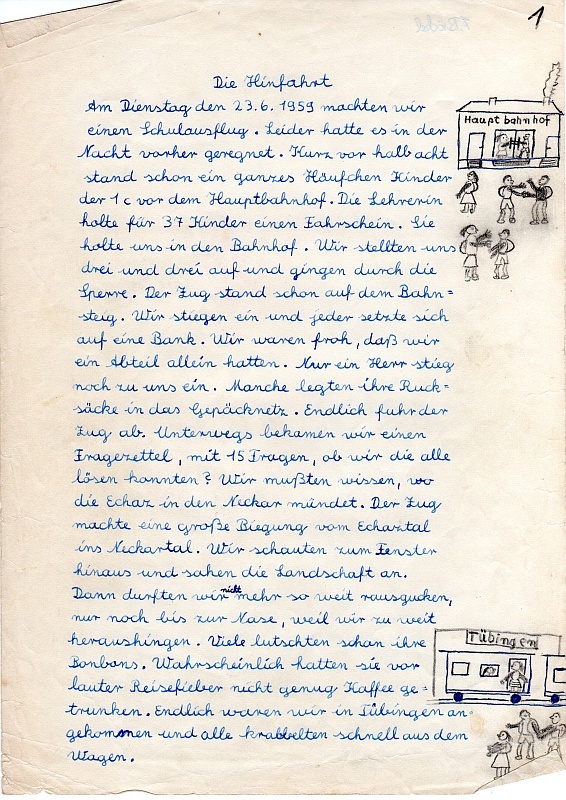 1
Die Hinfahrt
Am Dienstag den 23.6.1959 machten wir
einen Schulausflug. Leider hatte es in der
Nacht vorher geregnet. Kurz vor halb acht
stand schon ein ganzes Häufchen Kinder
der 1c vor dem Hauptbahnhof. Die Lehrerin
holte für 37 Kinder einen Fahrschein. Sie
holte uns in den Bahnhof. Wir stellten uns
drei und drei auf und gingen durch die
Sperre. Der Zug stand schon auf dem Bahn=
steig. Wir stiegen ein und jeder setzte sich
auf eine Bank. Wir waren froh, daß wir
ein Abteil allein hatten. Nur ein Herr stieg
noch zu uns ein. Manche legten ihre Ruck=
säcke in das Gepäcknetz. Endlich fuhr der
Zug ab. Unterwegs bekamen wir einen
Fragezettel, mit 15 Fragen, ob wir die alle
lösen konnten? Wir mußten wissen, wo
die Echaz in den Neckar mündet. Der Zug
machte eine große Biegung vom Echaztal
ins Neckartal. Wir schauten zum Fenster
hinaus und sahen die Landschaft an.
Dann durften wir nicht mehr so weit rausgucken,
nur noch bis zur Nase, weil wir zu weit
heraushingen. Viele lutschten schon ihre
Bonbons. Wahrscheinlich hatten sie vor
lauter Reisefieber nicht genug Kaffee ge=
trunken. Endlich waren wir in Tübingen an=
gekommen und alle krabbelten schnell aus dem
Wagen.
Hauptbahnhof
Tübingen